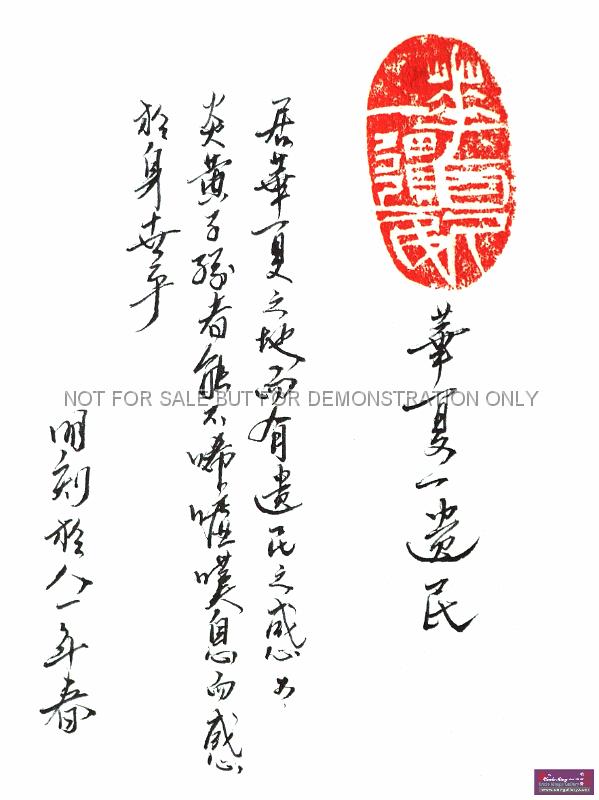 華夏一遺民
華夏一遺民
居華夏之地而有遺民之感为
炎黃子孫者能不唏嘘嘆息而感
於身世乎
明刻於八一年春
NOT FOR SALE BUT FOR DEMONSTRATION ONLY